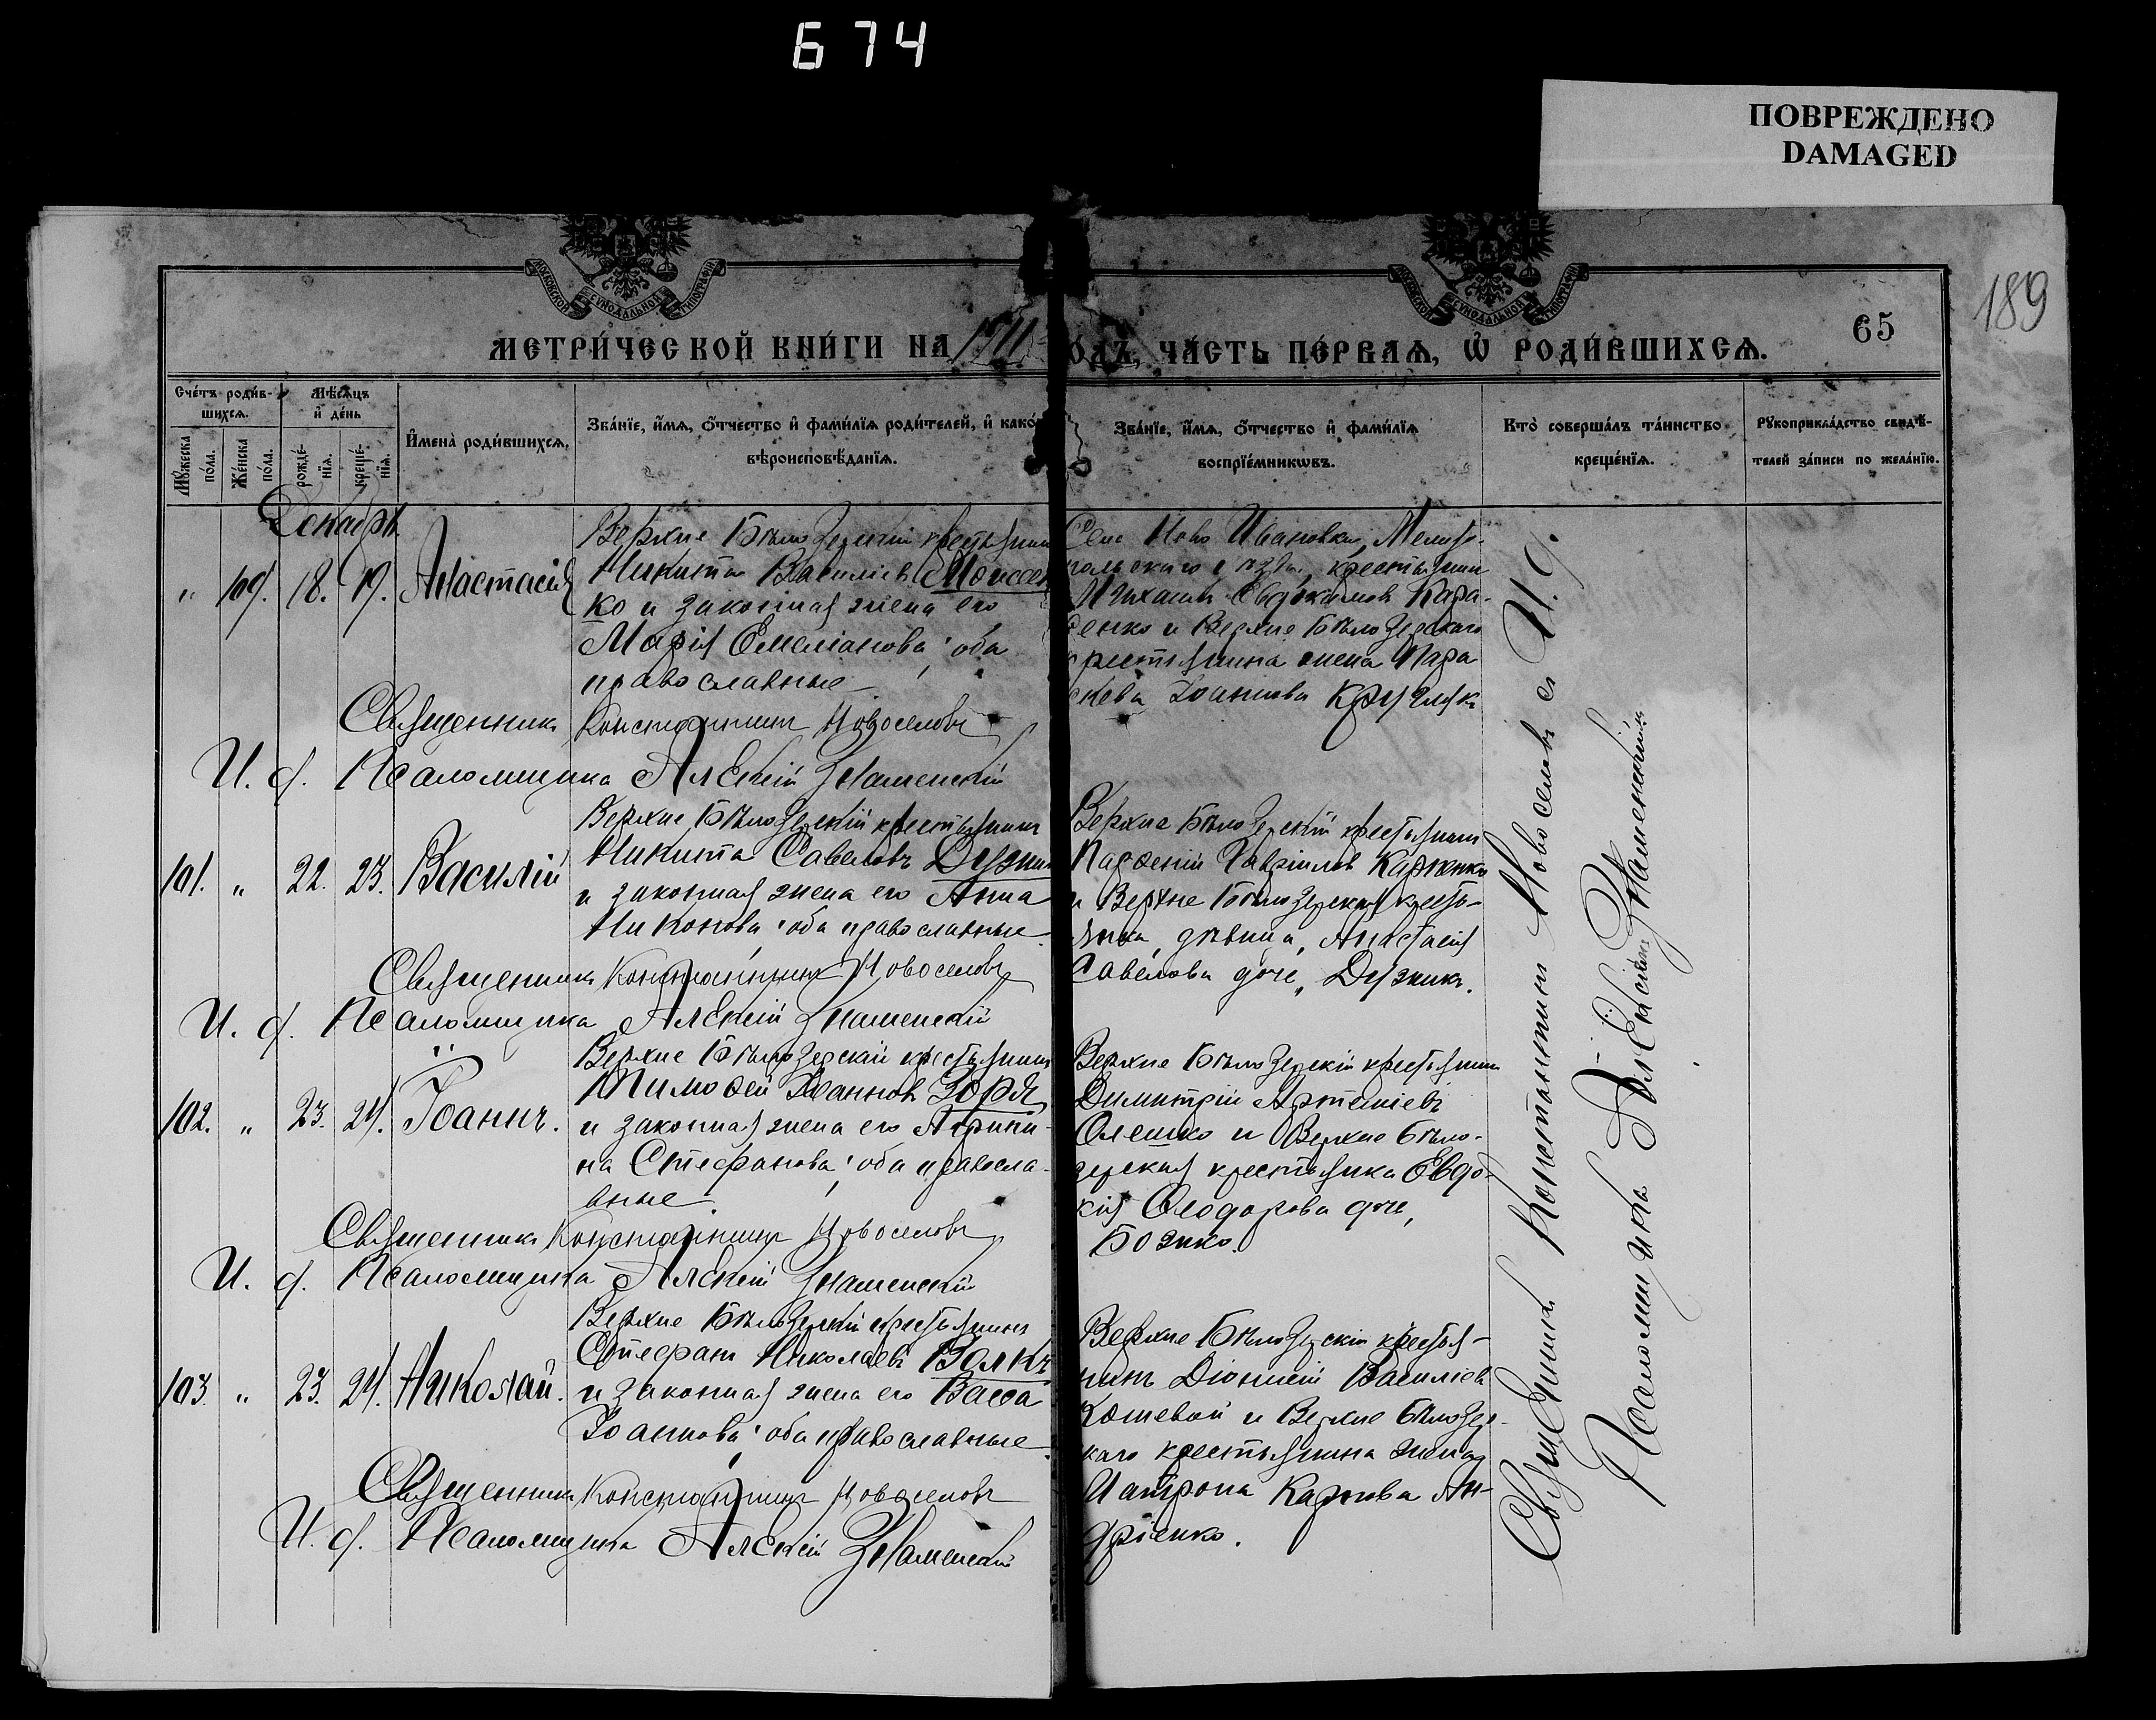 674
ПОВРЕЖДЕНО
DAMAGED
189
65
МОСКОВСКОЙ СѴНОДАЛЬНОЙ ТИПОГРАФІИ
МОСКОВСКОЙ СѴНОДАЛЬНОЙ ТИПОГРАФІИ
МЕТРИ́ЧЕСКОЙ КНИ́ГИ НА 1911 ОДЪ, ЧА́СТЬ ПЕ́РВАѦ, Ѽ РОДИ́ВШИХСѦ.
Сче́тъ роди́в-
шихсѧ.
Мѣ́сѧцъ
и҆ де́нь
Мꙋ́жеска
по́ла.
Же́нска
по́ла.
рожде́-
нїѧ.
креще́-
нїѧ.
И҆мена̀ роди́вшихсѧ.
Зва́нїе, и҆́мѧ, ѻ҆́тчество и҆ фами́лїѧ роди́телей, и҆ како́
вѣроисповѣ́данїѧ.
Зва́нїе, и҆́мѧ, ѻ҆́тчество и҆ фами́лїѧ
воспрїе́мникѡвъ.
Кто̀ соверша́лъ та́инство
креще́нїѧ.
Рꙋкоприкла́дство свидѣ́-
телей за́писи по жела́нїю.
Декабрь
„ 109. 18. 19. Анастасія
Верхне Бѣлозерскій крестьянин
Никита Василіевъ Моисеен
ко и законная жена его
Марія Емеліанова; оба
православные
Села Ново Ивановки, Мелито-
польскаго уѣзда, крестьянин
Михаилъ Евдокимовъ
и Верхне Бѣлозерскаго
крестьянина жена Пара
скева Іоаннова Кругляк
Священникъ Константинъ Новоселовъ
И. д. Псаломщика Алексій Знаменскій
101. „ 22. 23. Василій
Верхне Бѣлозерскій крестьянинъ
Никита Савеловъ Дузик
и законная жена его Анна
Никонова; оба православные
Верхне Бѣлозерскій крестьянинъ
Парѳеній Гавріиловъ Карпенко
и Верхне Бѣлозерская кресть-
янка, дѣвица, Анастасія
Савелова дочь, Дузикъ.
Священникъ Константинъ Новоселовъ
И. д. Псаломщика Алексій Знаменскій
102. „ 23. 24. Іоаннъ.
Верхне Бѣлозерскій крестьянинъ
Тимоѳей Іоанновъ Зоря
и законная жена его Агрипи-
на Стефанова; оба правосла-
вные
Верхне Бѣлозерскій крестьянинъ
Димитрій Артеміевъ
Олешко и Верхне Бѣло-
зерская крестьянка Евдо-
кія Ѳеодорова дочь,
Бозико.
Священникъ Константинъ Новоселовъ
И. д. Псаломщика Алексій Знаменскій
103. „ 23. 24. Николай.
Верхне Бѣлозерскій крестьянинъ
Стефанъ Николаевъ Волкъ
и законная жена его Васса
Іоаннова; оба православные
Верхне Бѣлозерскій крестья-
нинъ Діонисій Василіевъ
Кошевой и Верхне Бѣлозер-
скаго крестьянина жена
Карпова Ан-
дріенко.
Священникъ Константинъ Новоселовъ
И. д. Псаломщика Алексій Знаменскій
Священникъ Константинъ Новоселовъ и И. д.
Псаломщика Алексій Знаменскій